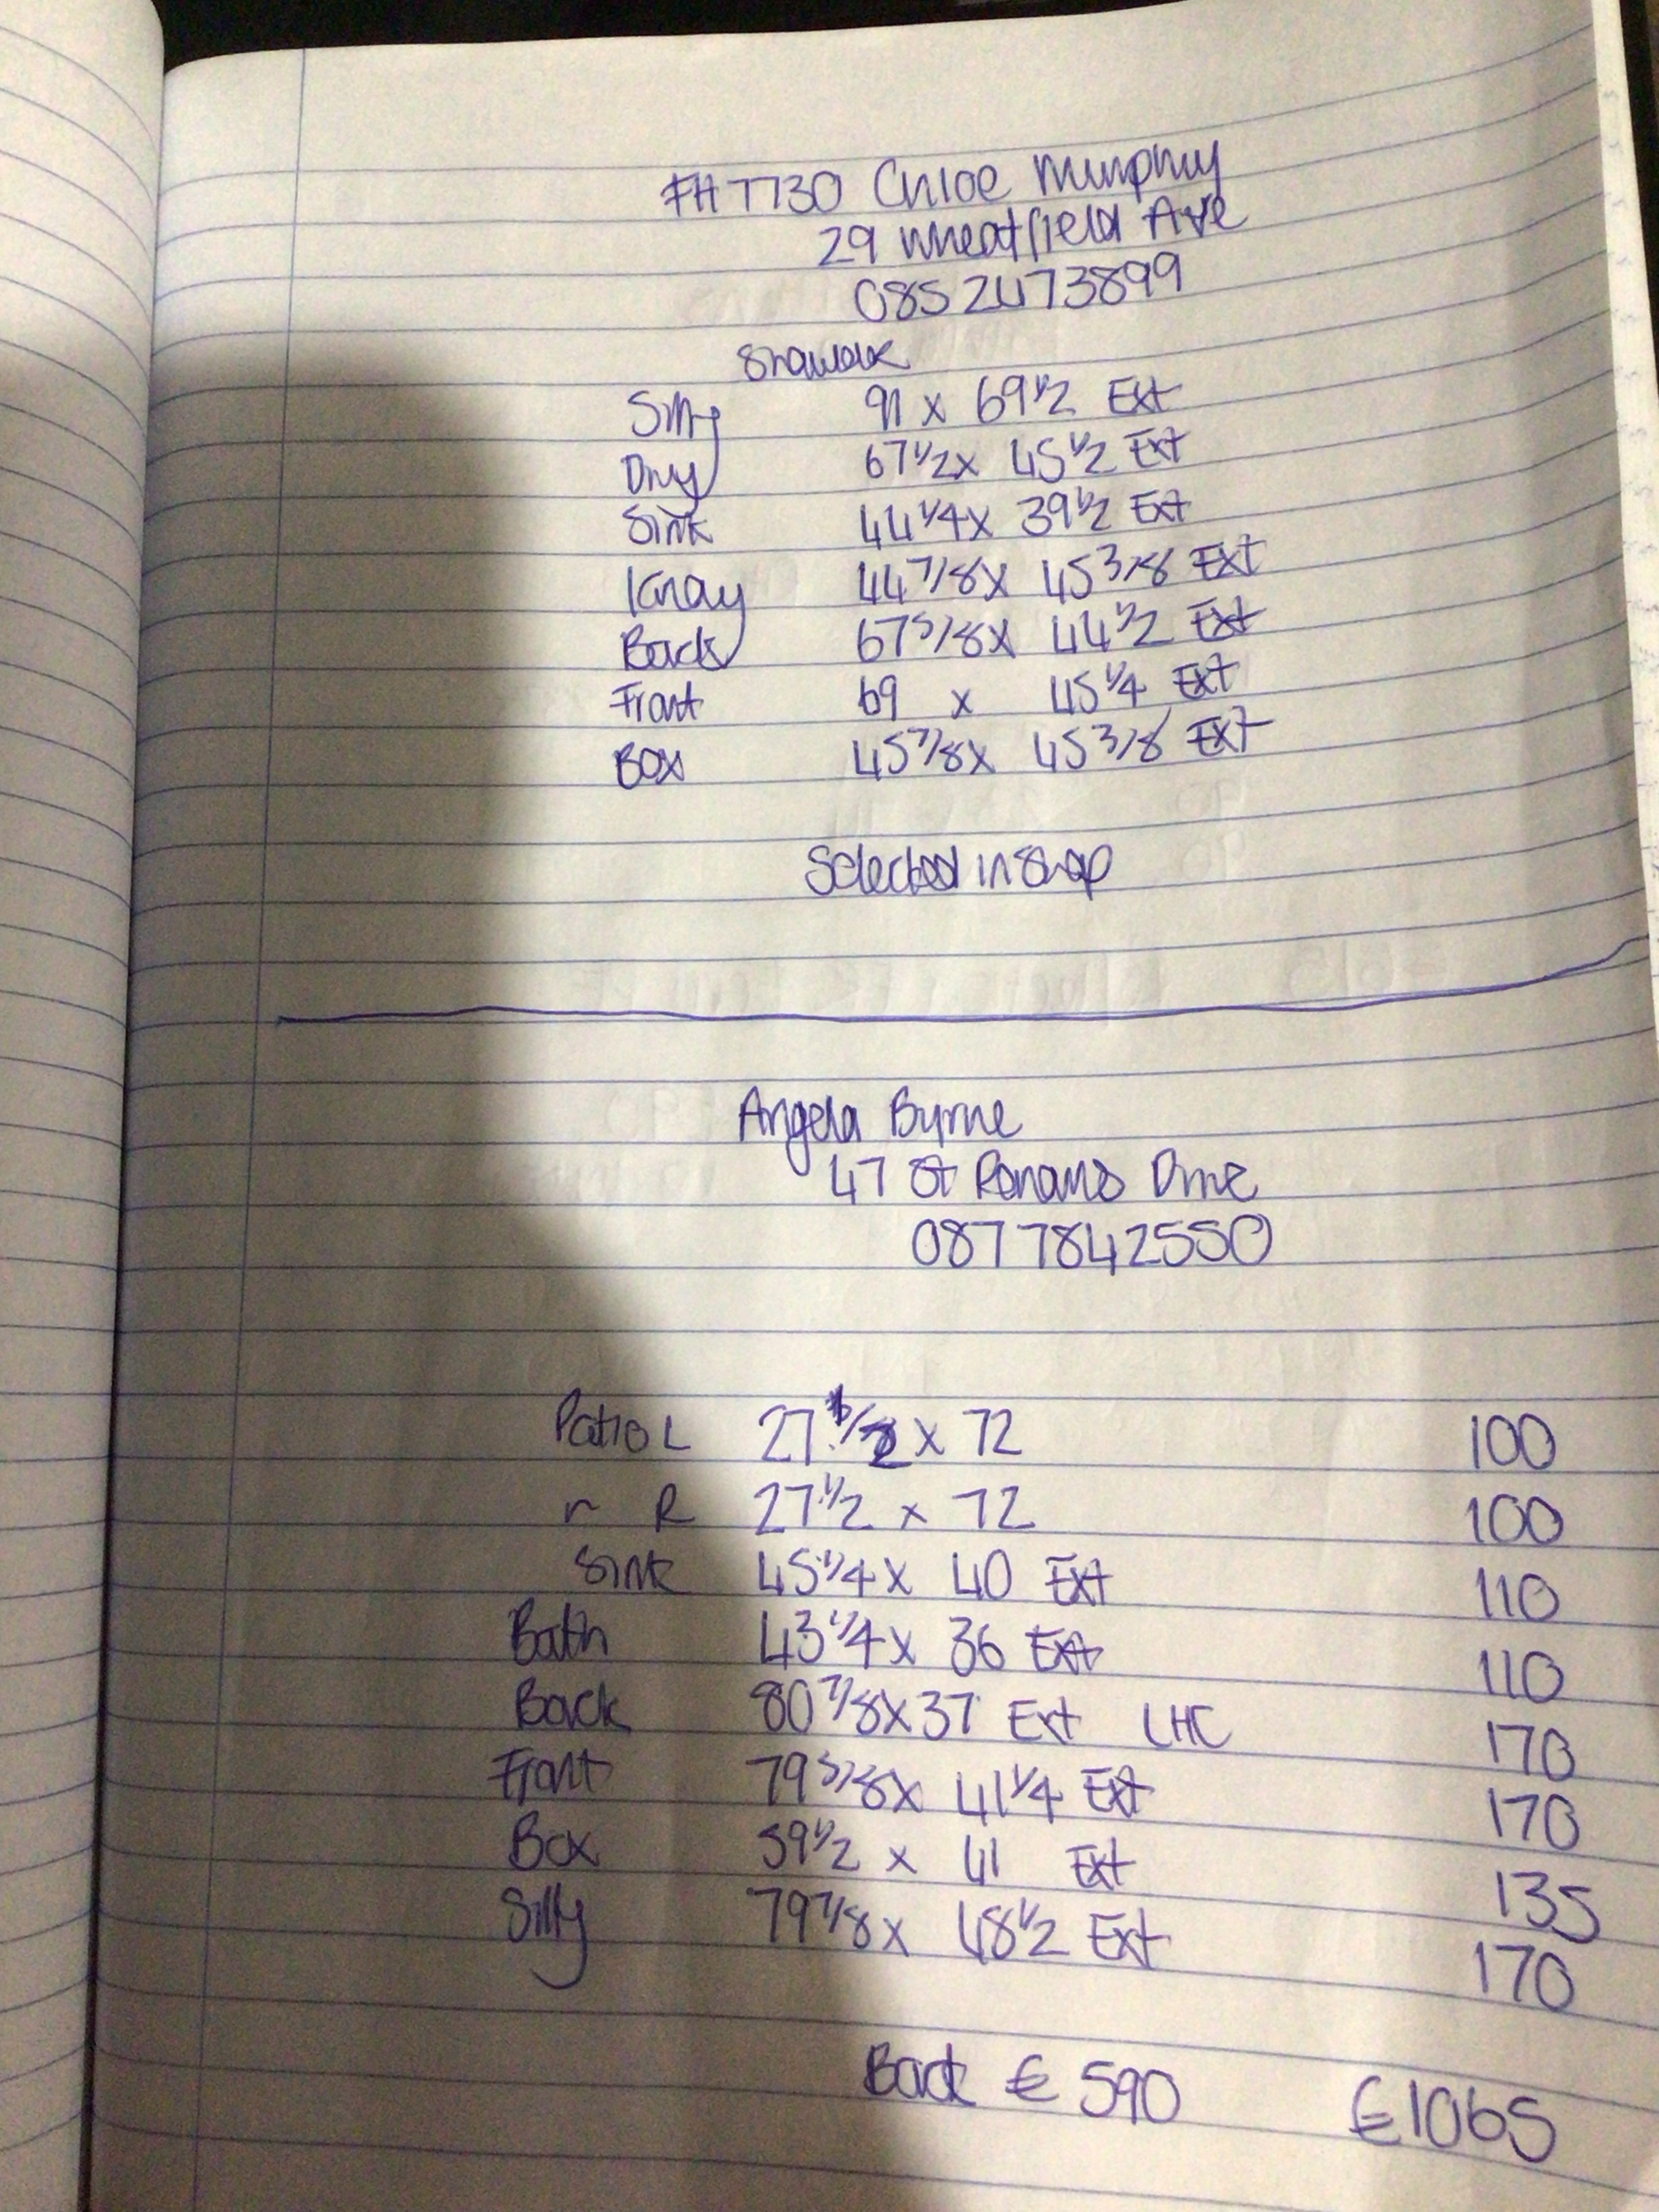 FH 7730 Chloe Murphy
29 Wheatfield Ave
0852473899
Sitty 91 x 69 1/2 Ext
67 1/2 x 45 1/2 Ext
Sink 44 1/4 x 39 1/2 Ext
44 7/8 x 45 3/8 Ext
Back 67 5/8 x 44 1/2 Ext
Front 69 x 45 1/4 Ext
Box 45 7/8 x 45 3/8 Ext
Selected in Shop
Angela Byrne
47 St Ronans Drive
0877842550
Patio L 27 1/2 x 72 100
" R 27 1/2 x 72 100
Sink 45 1/4 x 40 Ext 110
Bath 43 1/4 x 36 Ext 110
Back 80 7/8 x 37 Ext LHC 170
Front 79 5/8 x 41 1/4 Ext 170
Box 59 1/2 x 41 Ext 135
Sitty 79 7/8 x 48 1/2 Ext 170
Back € 590 €1065